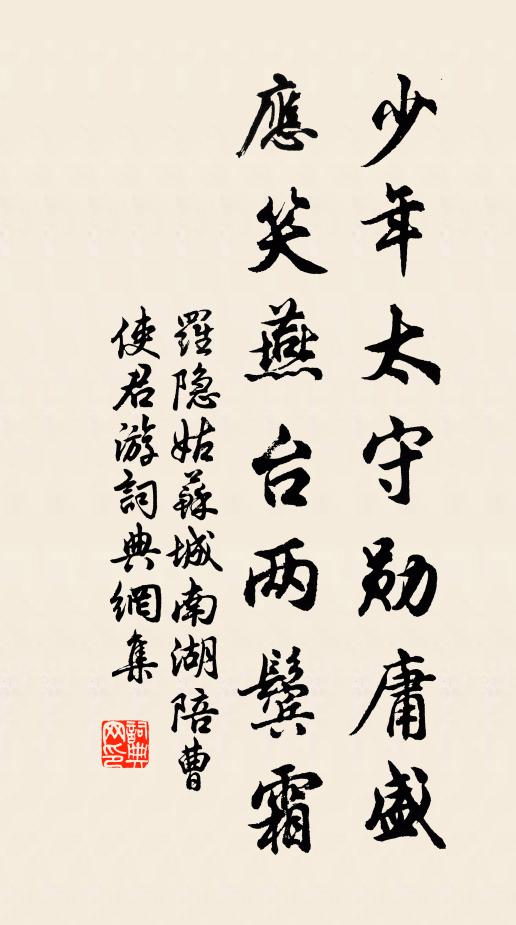 少年太守勋庸盛
應笑燕台两鬢霜
羅隐姑蘇城南湖陪曹
使君游詞典網集
詞典网印